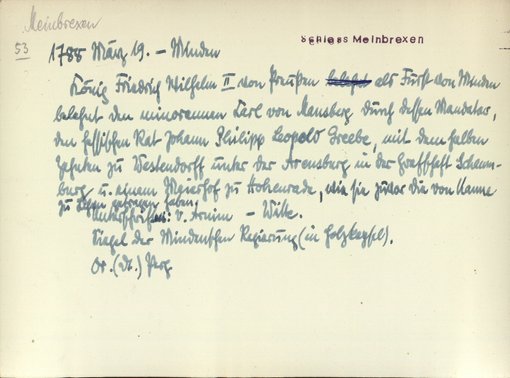 Meinbrexen
53
Schloss Meinbrexen
1788 März 19. – Minden
König Friedrich Wilhelm II von Preußen belehnt als Fürst von Minden
belehnt den minorennen Carl von Mansberg durch dessen Mandatar,
den hessischen Rat Johann Philipp Leopold Greebe, mit dem halben
Zehnten zu Westendorff unter der Arensburg in der Graffschaft Schaum-
burg u. einem Meierhof zu Hohenrade, wie sie zuvor die von Kanne
zu Lehen getragen haben.
Unterschriften: v. Arnim – Wilke.
Siegel der Mindenschen Regierung (in Holzkapsel).
Or. (dt.) Perg.